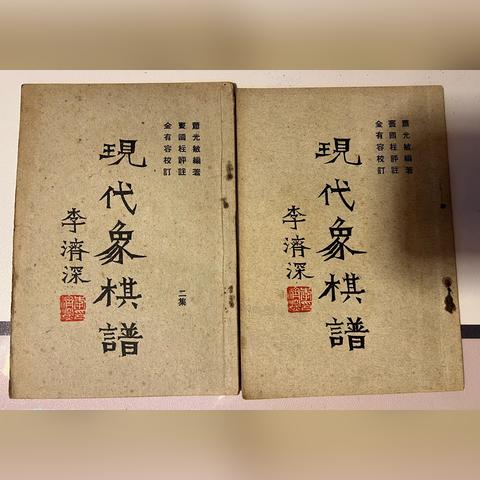 光敏編著
竇國柱評註
金有容校訂
現代象棋譜
李濟深
二集
光敏編著
竇國柱評註
金有容校訂
現代象棋譜
李濟深